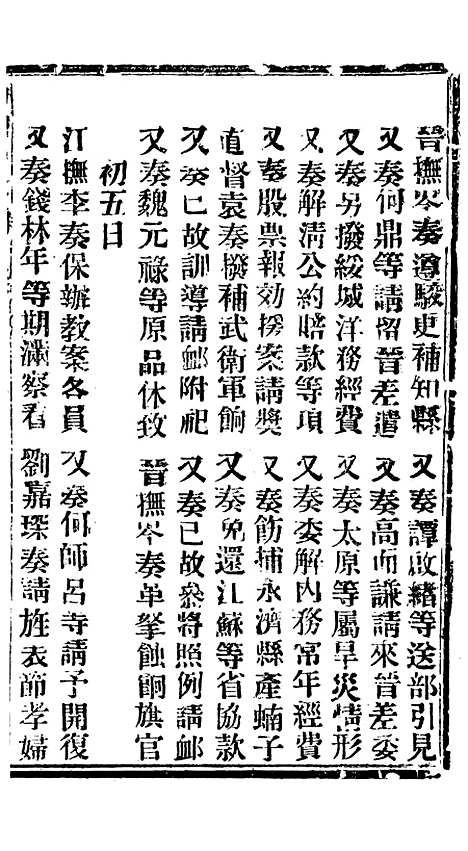 晉撫岑奏遵駁更補知縣　又奏譚啟緒等送部引見
又奏何鼎等請留晉差遣　又奏高向謙請來晉差委
又奏另撥綏城洋務經費　又奏太原等屬旱災情形
又奏解清公約賠款等項　又奏委解內務常年經費
又奏股票報効援案請獎　又奏飭捕永濟縣產蝻子
直督袁奏撥補武衛軍餉　又奏免還江蘇等省協款
又奏已故訓導請卹附祀　又奏已故參將照例請卹
又奏魏元祿等原品休致　晉撫岑奏革拏蝕餉旗官
初五日
江撫李奏保辦教案各員　又奏何師呂寺請予開復
又奏錢林年等期滿察看　劉嘉琛奏請旌表節孝婦